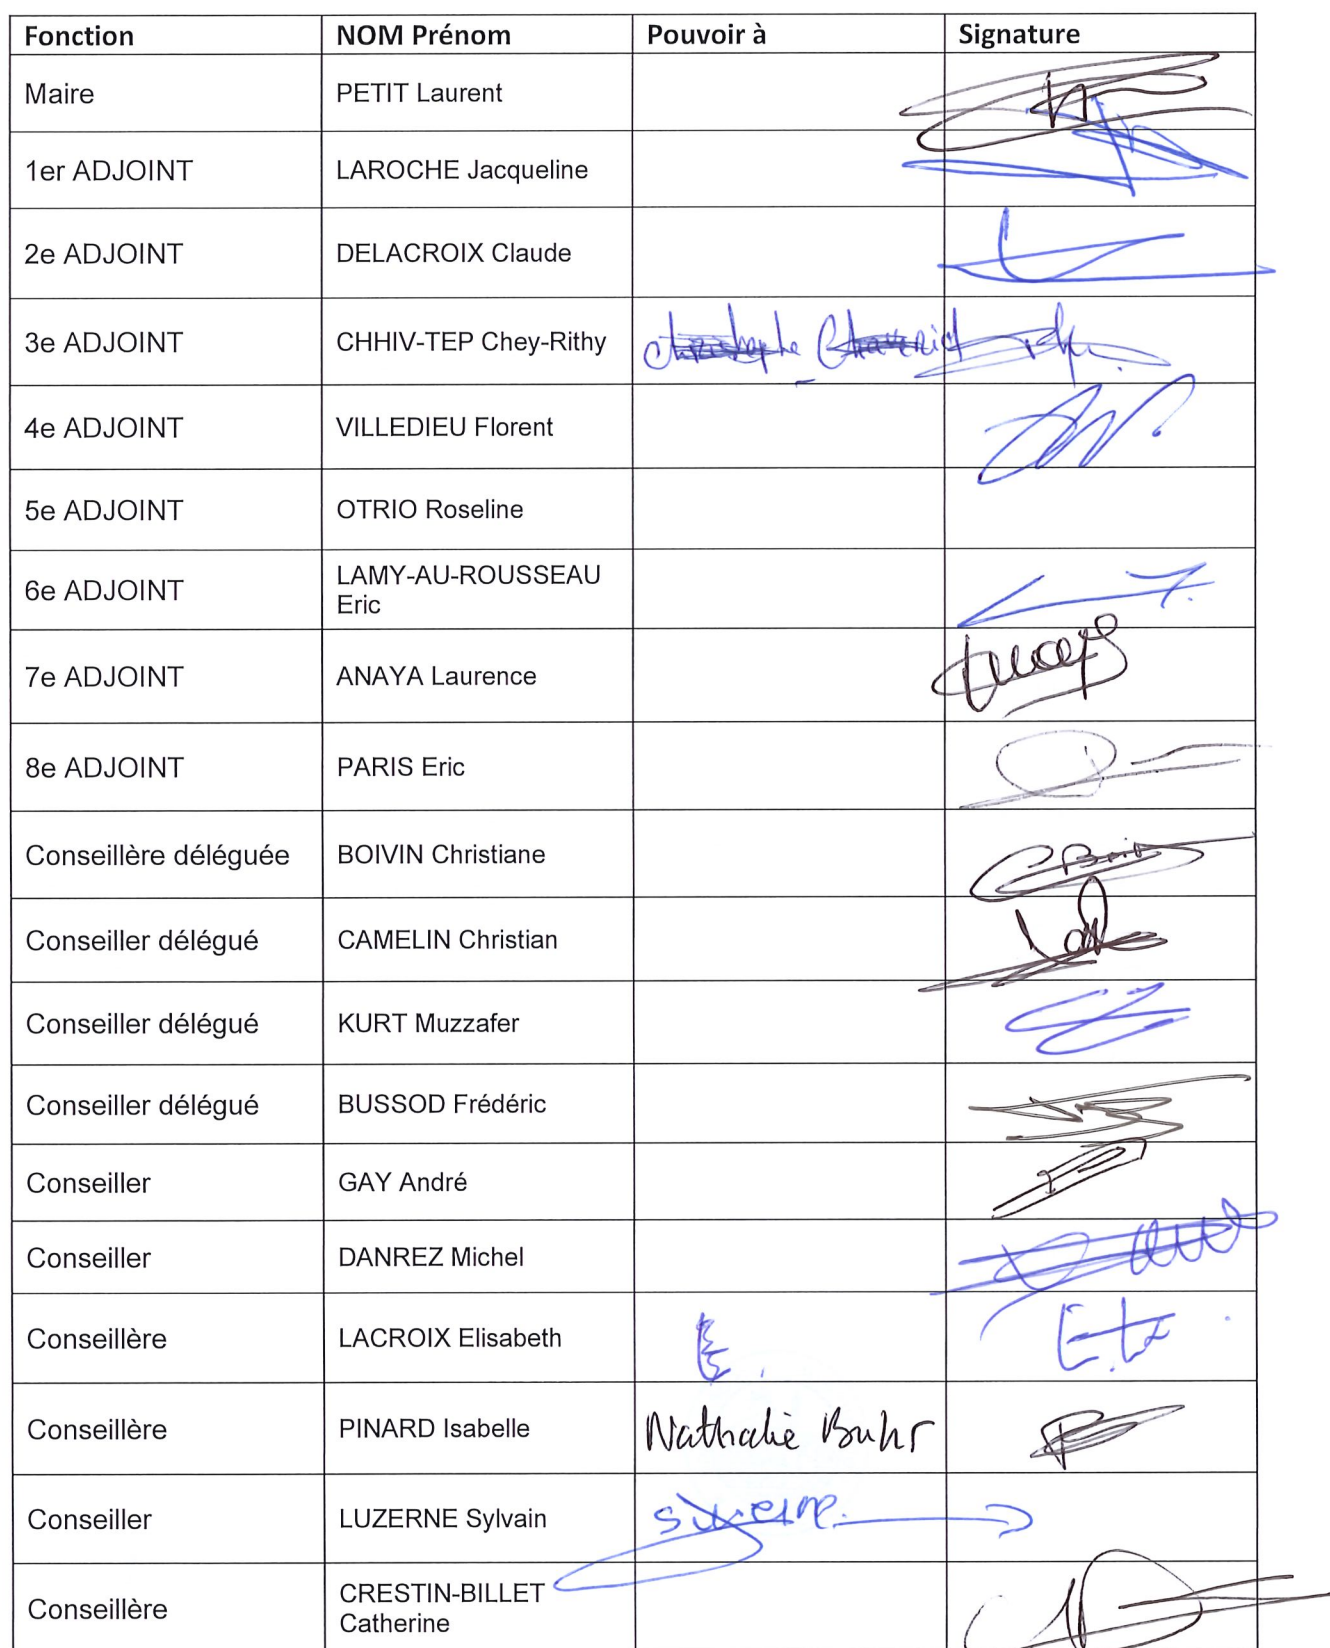 Fonction NOM Prénom Pouvoir à Signature
Maire PETIT Laurent
1er ADJOINT LAROCHE Jacqueline
2e ADJOINT DELACROIX Claude
3e ADJOINT CHHIV-TEP Chey-Rithy
4e ADJOINT VILLEDIEU Florent
5e ADJOINT OTRIO Roseline
6e ADJOINT LAMY-AU-ROUSSEAU
Eric
7e ADJOINT ANAYA Laurence
8e ADJOINT PARIS Eric
Conseillère déléguée BOIVIN Christiane
Conseiller délégué CAMELIN Christian
Conseiller délégué KURT Muzzafer
Conseiller délégué BUSSOD Frédéric
Conseiller GAY André
Conseiller DANREZ Michel
Conseillère LACROIX Elisabeth
Conseillère PINARD Isabelle Nathalie Buhr
Conseiller LUZERNE Sylvain
Conseillère CRESTIN-BILLET
Catherine